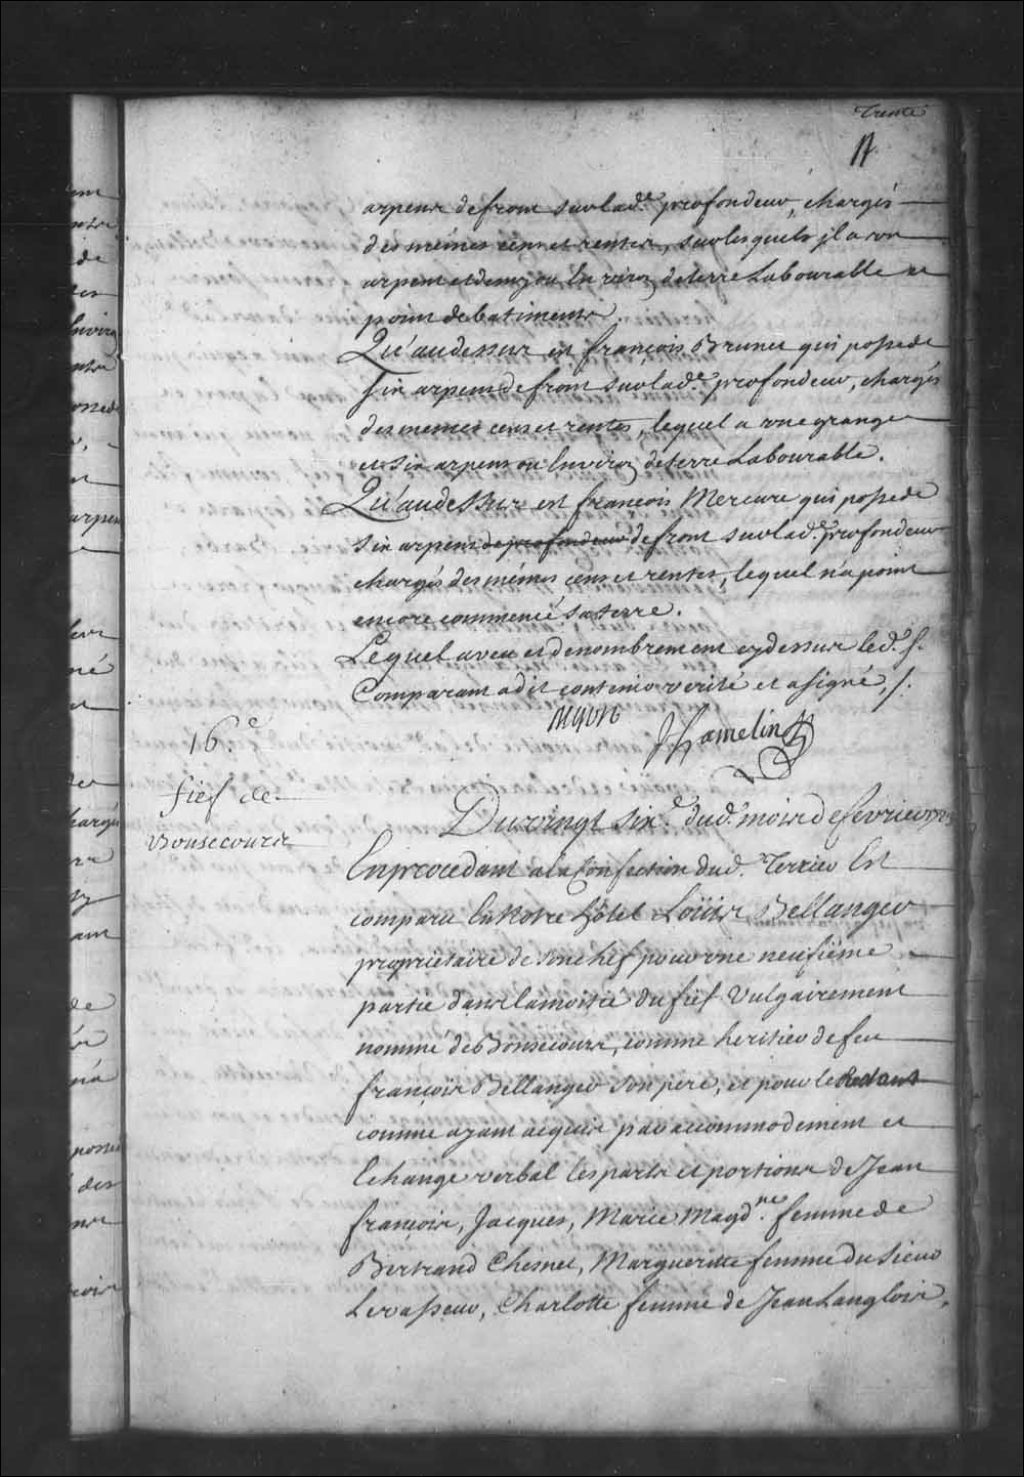 Trente
arpens de front sur lad.e profondeur, chargés
des mêmes cens et rentes, sur lesquels il a un
arpent et demy ou Environ de terre Labourable et
point de batiments.
Qu'audessus est françois Brunet qui possede
six arpens de front sur lad.e profondeur, chargés
des memes cens et rentes, lequel a une grange
et six arpens ou Environ de terre Labourable.
Qu'audessus est francois Mercure qui possede
six arpens de profondeur de front sur lad.e profondeur
chargés des mêmes cens et rentes, lequel n'a point
encore commencé sa terre.
Lequel aveu et denombrement cy dessus led. s.
Comparant a dit contenir verité et a signé ./.
JHamelin
16e
fief de
Bonsecours
Du vingt six.e dud. mois de fevrier
En procedant a la Confection dud. Terrier Est
comparu En Notre hôtel Loüis Bellanger
proprietaire de son chef pour une neufiéme
partie dans la moitié du fief Vulgairement
nommé de Bonsecours, comme heritier de feu
françois Bellanger son pere, et pour le Restant
comme ayant acquis par accommodement et
Echange verbal les parts et portions de Jean
francois, Jacques, Marie Magd.ne femme de
Bertrand Chesnet, Marguerite femme du Sieur
Levasseur, Charlotte femme de Jean Langlois,